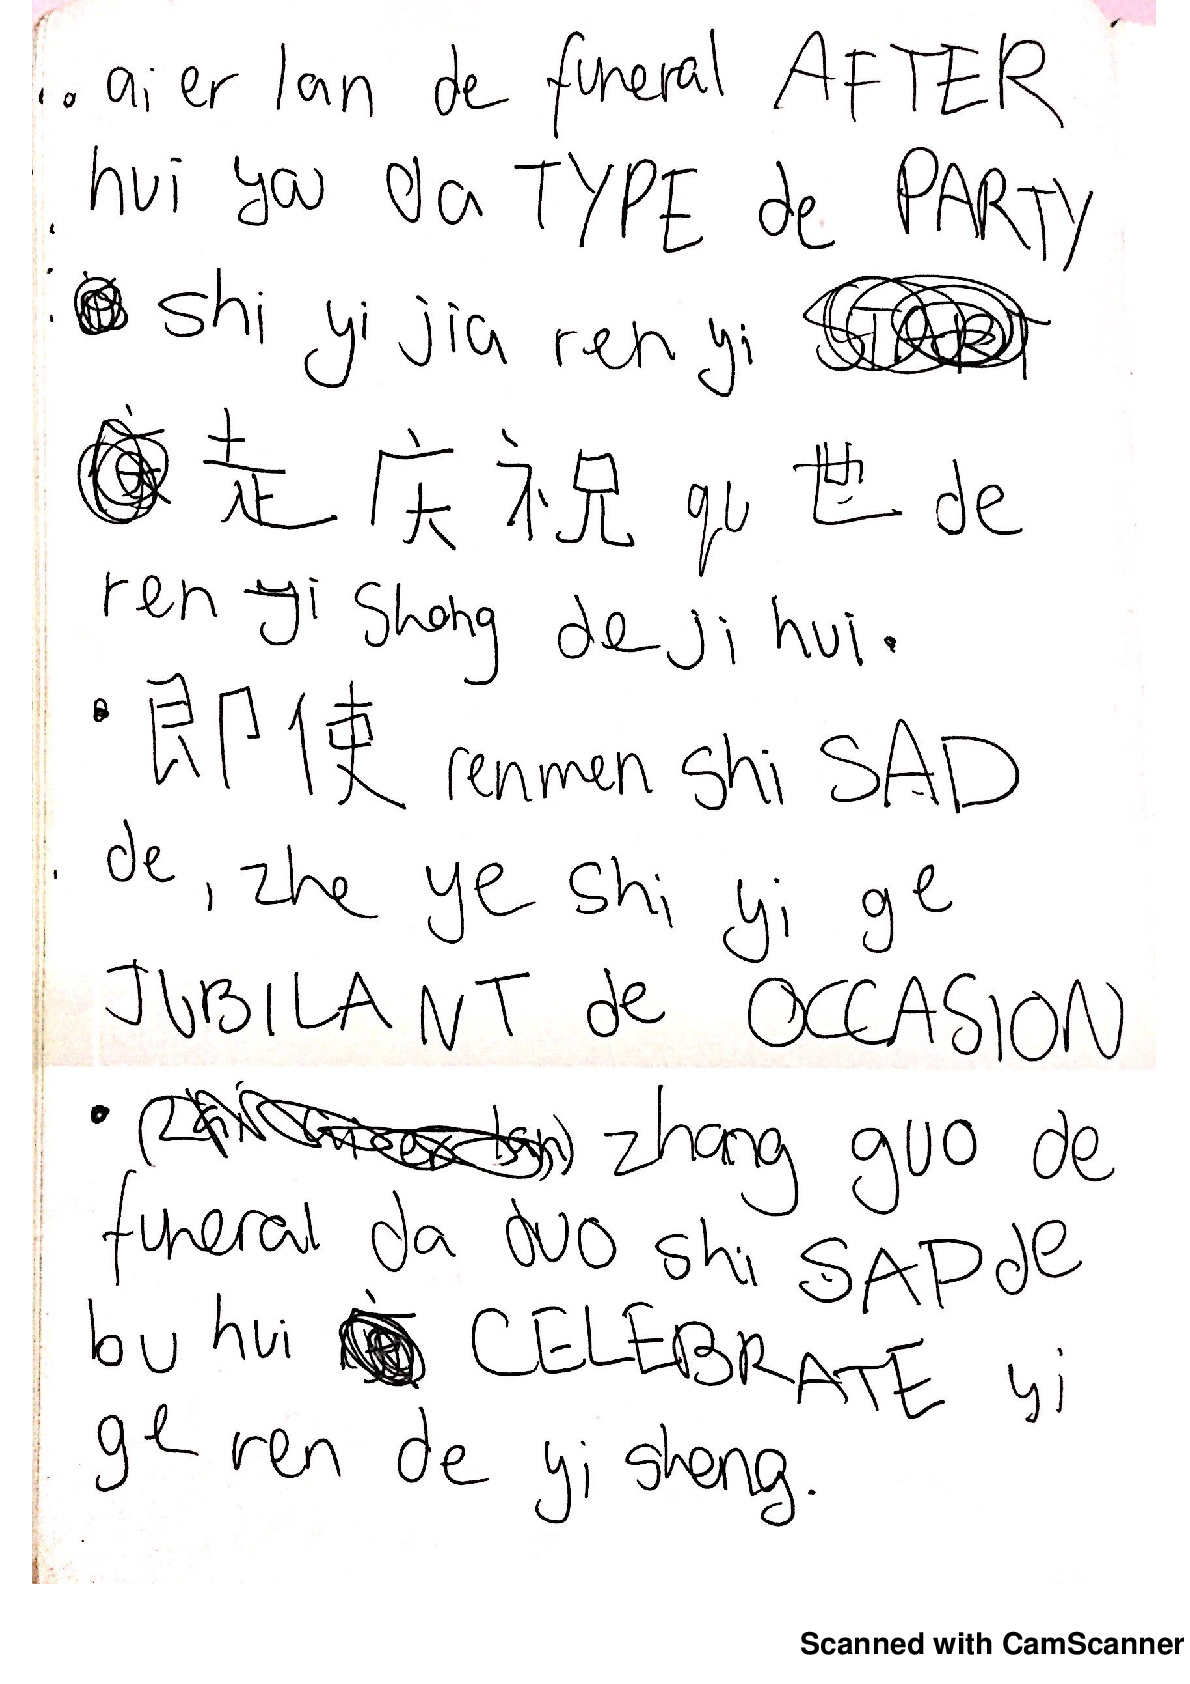 ai er lan de funeral AFTER
hui you da TYPE de PARTY
shi yi jia ren yi
走 庆 祝 qu 世 de
ren yi sheng de ji hui.
即使 renmen shi SAD
de, zhe ye shi yi ge
JUBILANT de OCCASION
zhong guo de
funeral da duo shi SAD de
bu hui CELEBRATE yi
ge ren de yi sheng.
Scanned with CamScanner